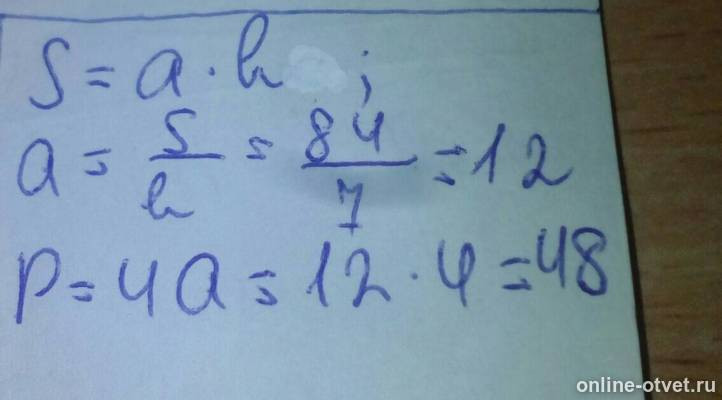 S = a · h ;
a = S/h = 84/7 = 12
P = 4a = 12 · 4 = 48
online-otvet.ru